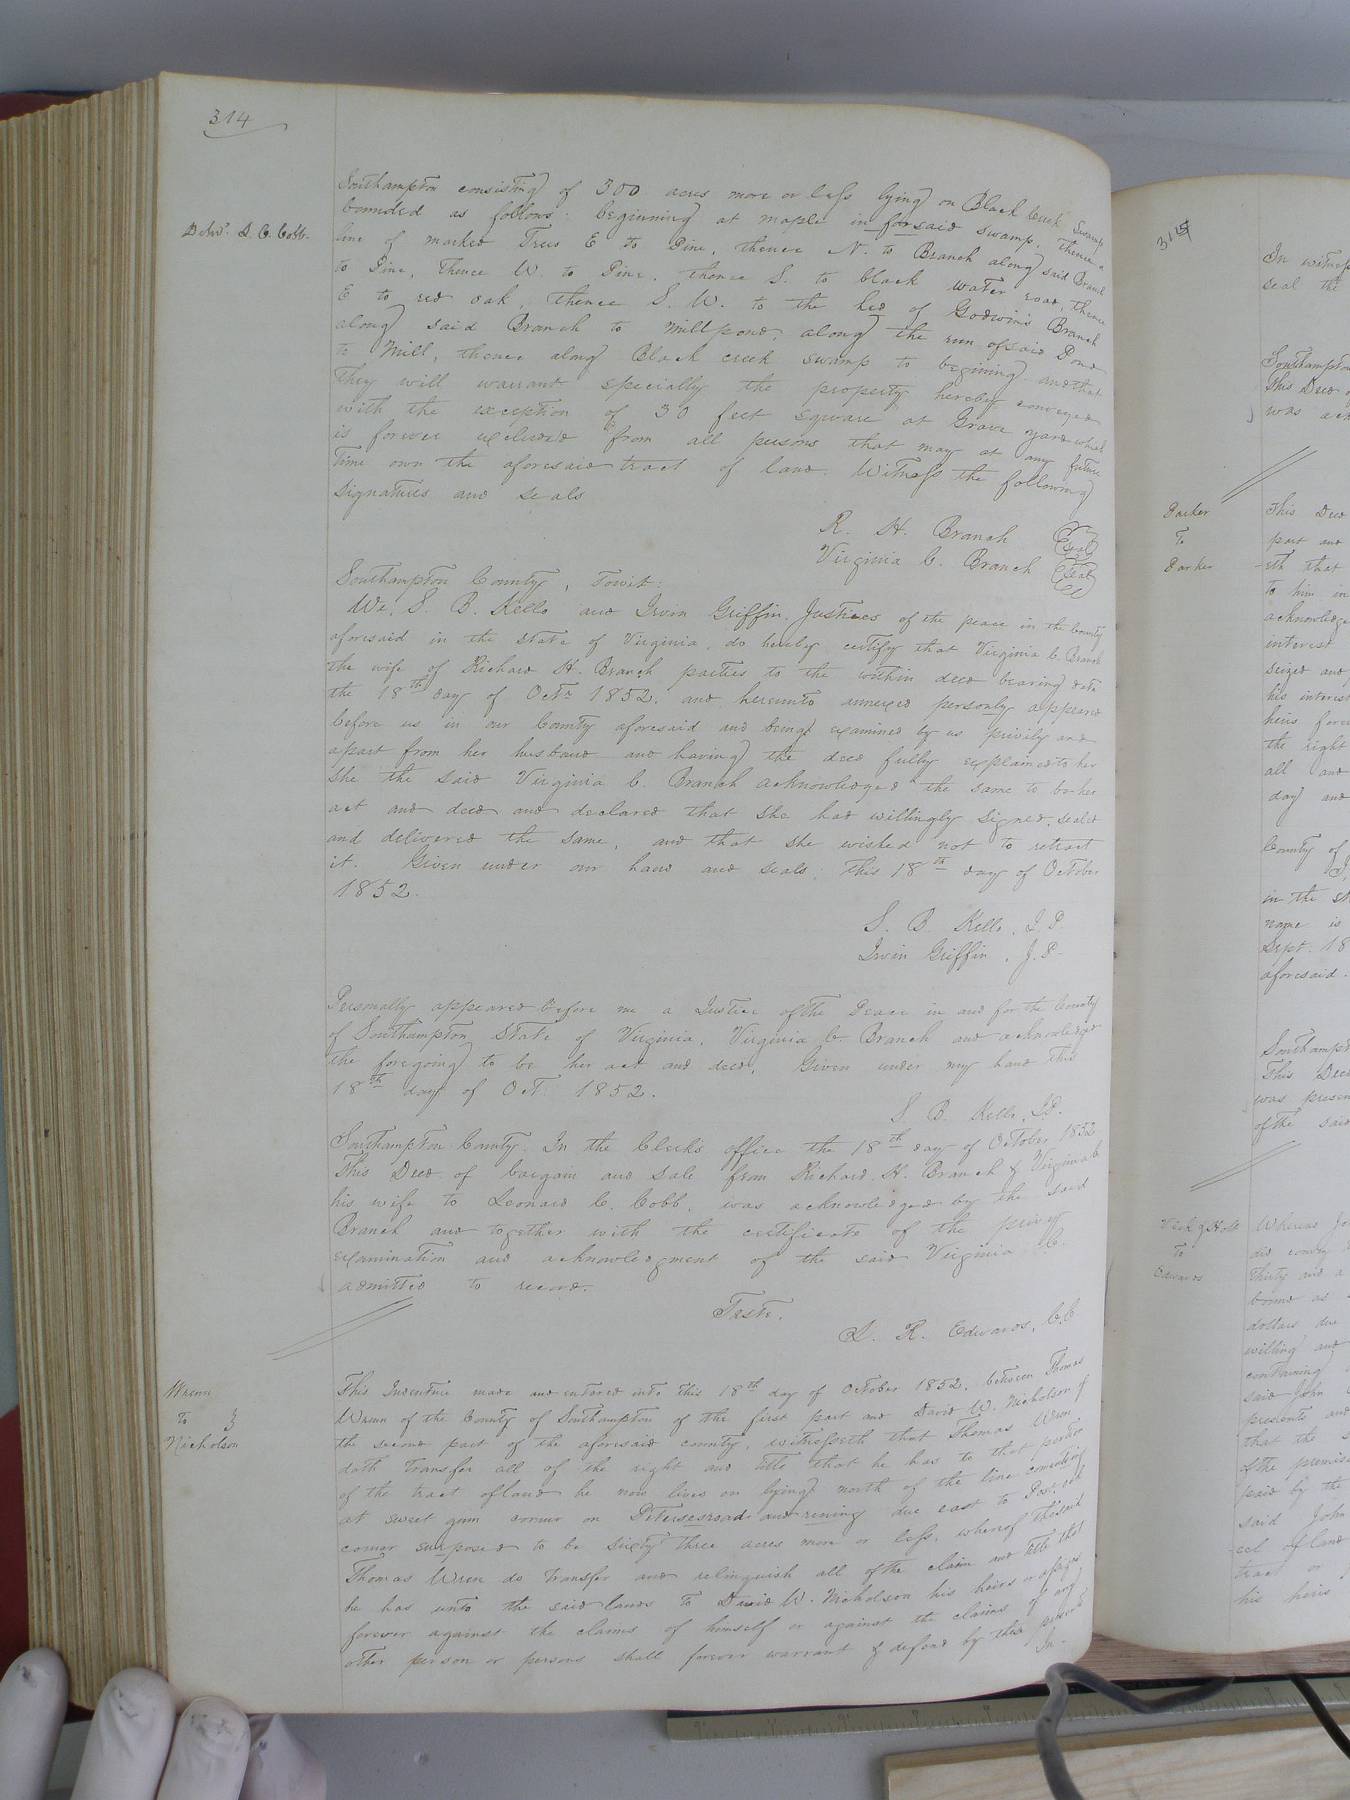 314
Delivd. L. C. Cobb.
Southampton consisting of 300 acres more or less lying on Black Creek Swamp
bounded as follows: beginning at maple in forsaid swamp, thence a
line of marked Trees E to Pine, thence N. to Branch along said Branch
to Pine, Thence W. to Pine, thence S. to black water road, thence
E to red oak, thence S. W. to the hed of Godwin's Branch
along said Branch to millpond, along the run of said Pond
to Mill, thence along Black creek swamp to begining and that
They will warrant specially the property hereby conveyed
with the exception of 30 feet square at Grave yard which
is forever excluded from all persons that may at any future
Time own the aforesaid tract of land. Witness the following
signatures and seals
R. H. Branch Seal
Virginia C. Branch Seal
Southampton County, Towit:
We, S. B. Kello and Irvin Griffin, Justices of the peace in the County
aforesaid in the State of Virginia, do hereby certify that Virginia C. Branch
the wife of Richard H. Branch parties to the within deed bearing date
the 18th day of Octr 1852, and hereunto annexed personly appeared
before us in our County aforesaid and being examined by us privily and
apart from her husband and having the deed fully explained to her
she the said Virginia C. Branch acknowledged the same to be her
act and deed and declared that she had willingly signed, sealed
and delivered the same, and that she wished not to retract
it. Given under our hand and seals, this 18th day of October
1852.
S. B. Kello, J.P.
Irvin Griffin, J.P.
Personally appeared before me a Justice of the Peace in and for the County
of Southampton State of Virginia, Virginia C. Branch and acknowledged
the foregoing to be her act and deed, Given under my hand this
18th day of Oct. 1852.
S. B. Kello, J.P.
Southampton County. In the Clerk's office the 18th day of October 1852
This Deed of bargain and sale from Richard H. Branch & Virginia C.
his wife to Leonard C. Cobb, was acknowledged by the said
Branch and together with the certificate of the privy
examination and acknowledgment of the said Virginia C.
admitted to record.
Teste,
L. R. Edwards, C.C
Wrenn
To
Nicholson
This Indenture made and entered into this 18th day of October 1852, between Thomas
Wrenn of the County of Southampton of the first part and David W. Nicholson of
the second part of the aforesaid county, witnesseth that Thomas Wren
doth transfer all of the right and title that he has to that portion
of the tract of land he now lives on lying north of the line
at sweet gum corner on Petersesroad and rining due east to Post oak
corner supposed to be Sixty three acres more or less, whereof
Thomas Wren do transfer and relinquish all of the claim and title that
he has unto the said lands to David W. Nicholson his heirs or assigns
forever against the claims of himself or against the claims of any
other person or persons shall forever warrant & defend by these presents
In-
315
In witness
seal the
Southampton
This Deed
was ack
Darker
To
Darker
This Deed
part and
-eth that
to him in
acknowledge
interest
seized and
his interest
heirs fore
the right
all and
day and
County of
in the St
name is
Sept. 18
aforesaid.
Southampt
This Deed
was presen
of the said
To
Edwards
Whereas Jo
did convey
Thirty and a
bound as
dollars due
willing and
containing
said John
presents and
that the
of the premise
paid by the
said John
-cel of land
tract or
his heirs